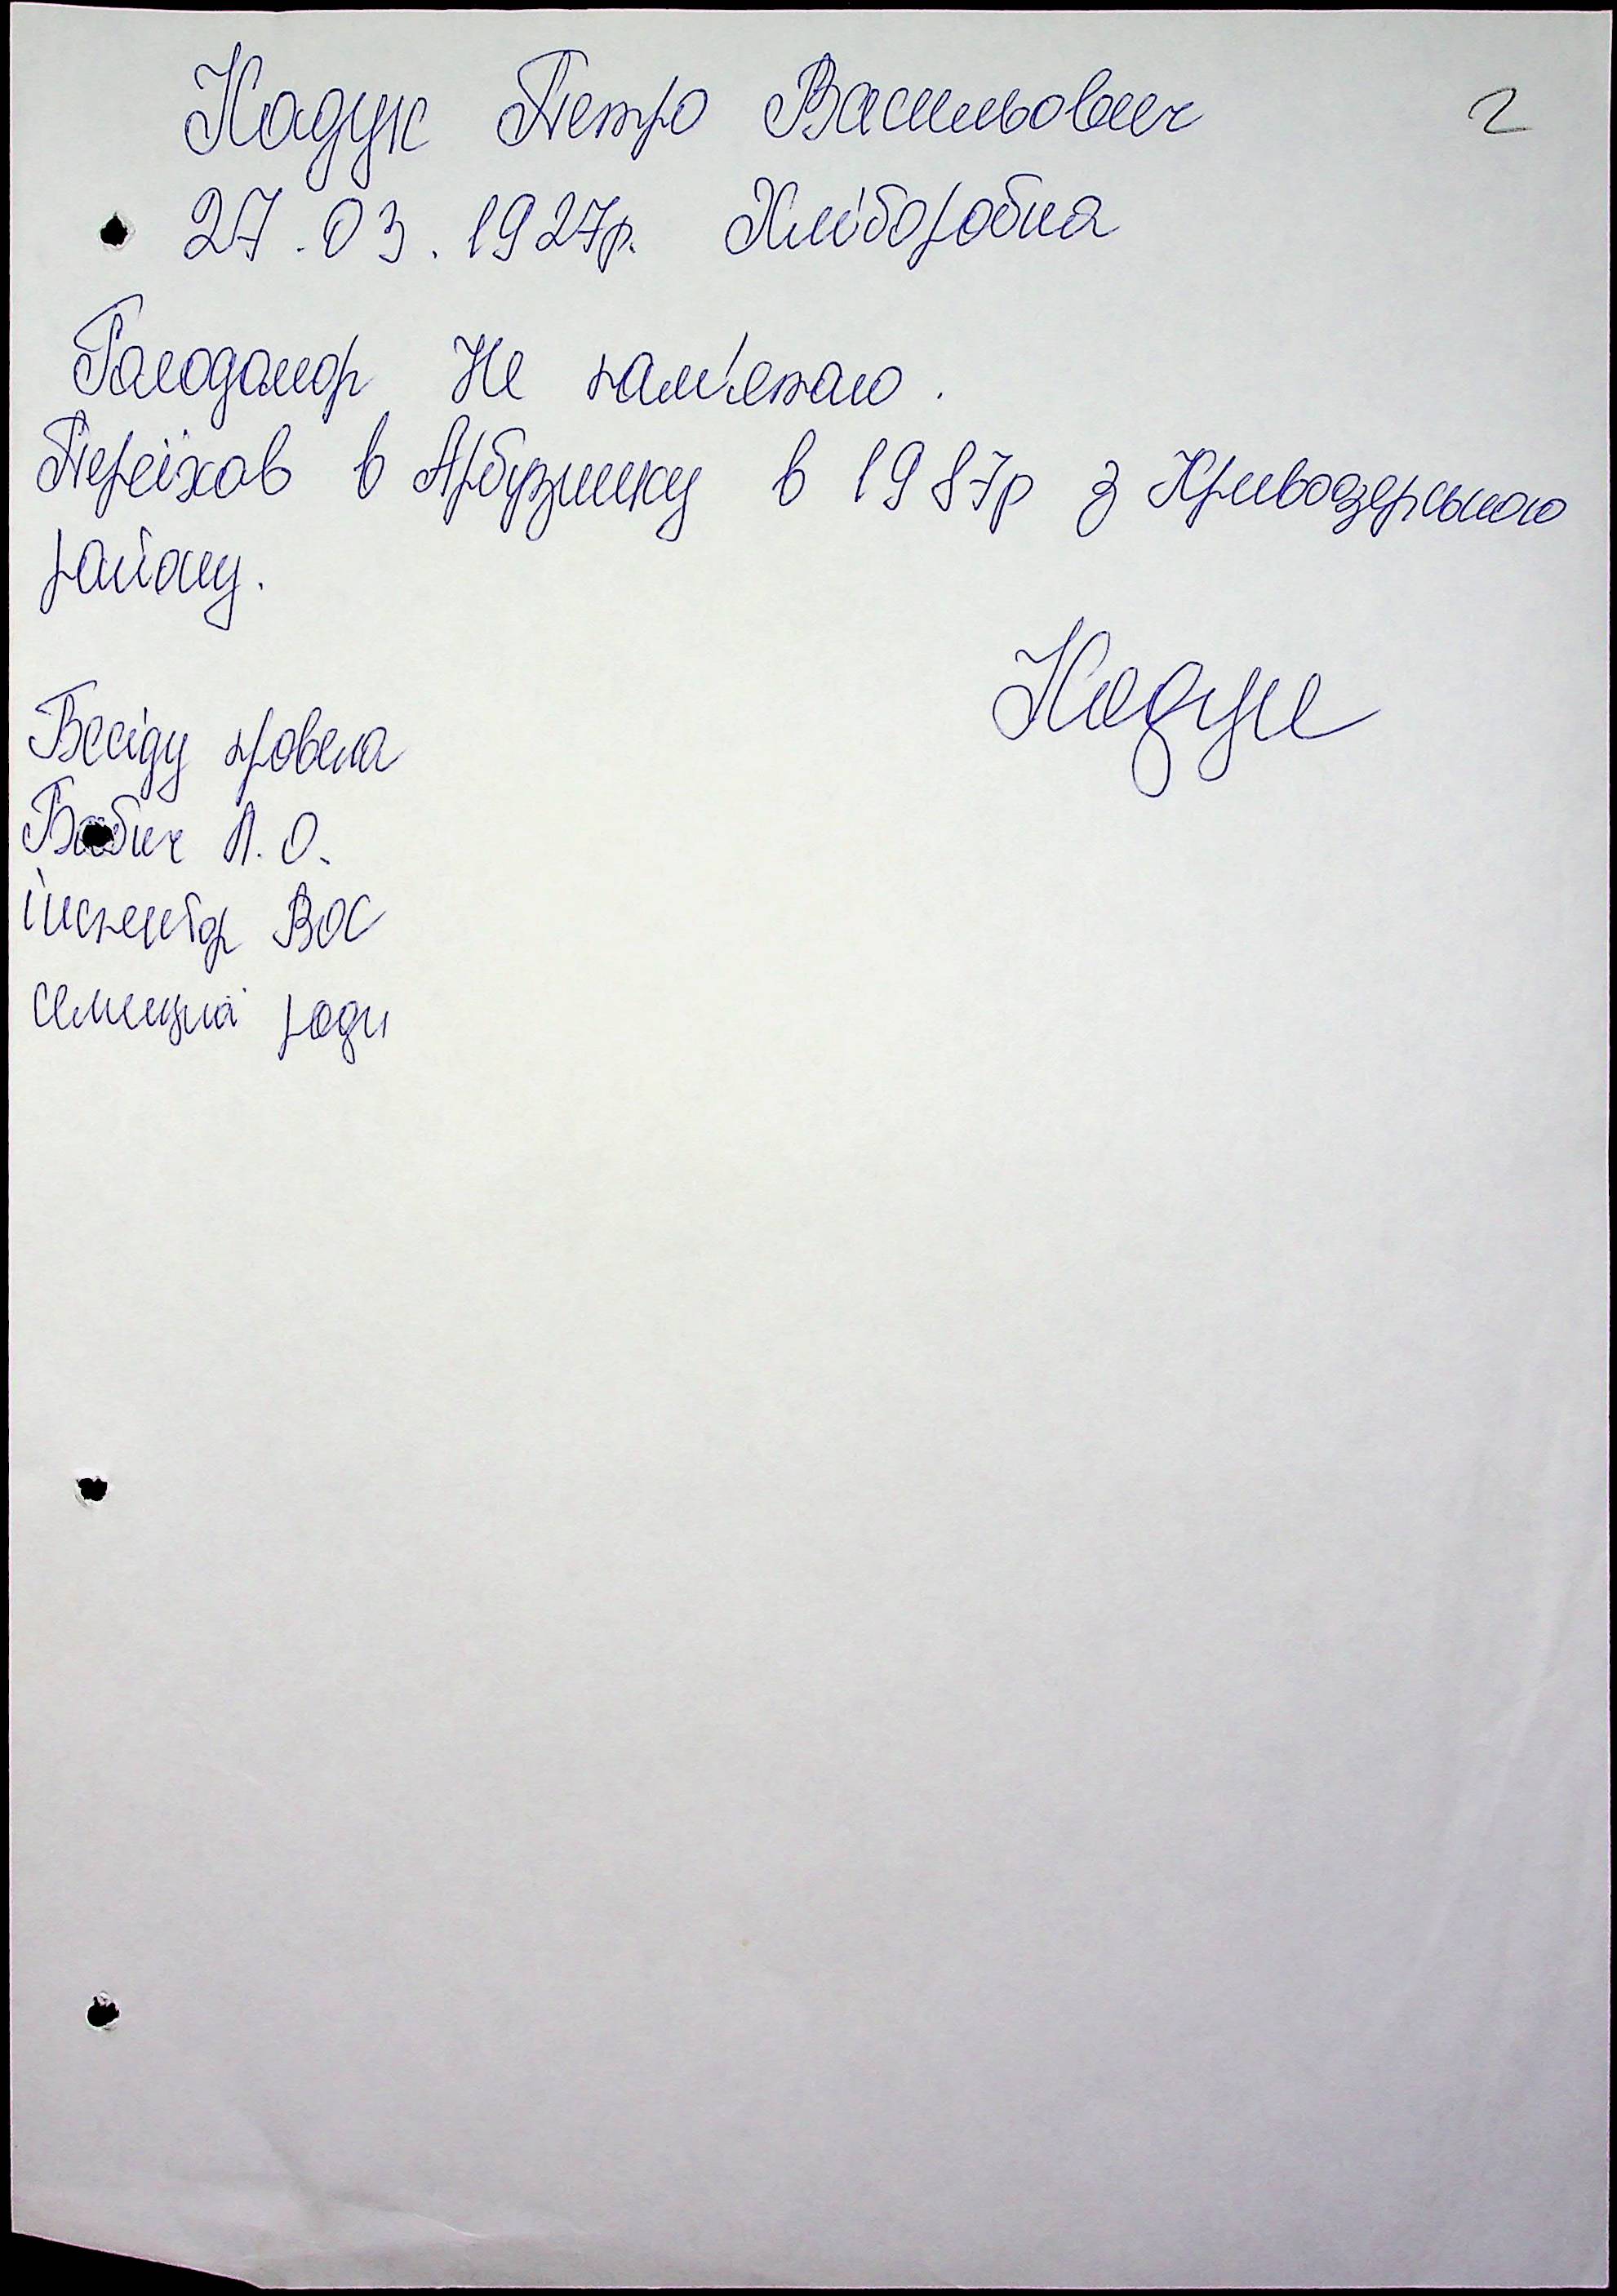 Кадук Петро Васильович 2
27.03.1927р. Хліборобна
Голодомор Не пам'ятаю.
Переїхав в Арбузинку в 1987р з Кривоозерського
району.
Кадук
Бесіду провела
Бабич Л.О.
інспектор ВОС
селищної ради